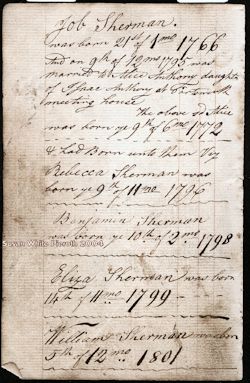 Job Sherman.
was born 21st of 1mo 1766
and on 9th of 12mo 1795 was
married to Alice Anthony daughter
of Isaac Anthony at Portsmouth
meeting house
the above sd Alice
was born ye 9th of 6mo 1772
& had Born unto them Viz
Rebecca Sherman was
born ye 9th of 11mo 1796
Benjamin Sherman
was born ye 10th of 2mo 1798
Susan White Pieroth 2004
Eliza Sherman was born
14th of 11mo 1799
William Sherman was born
5th of 12mo 1801